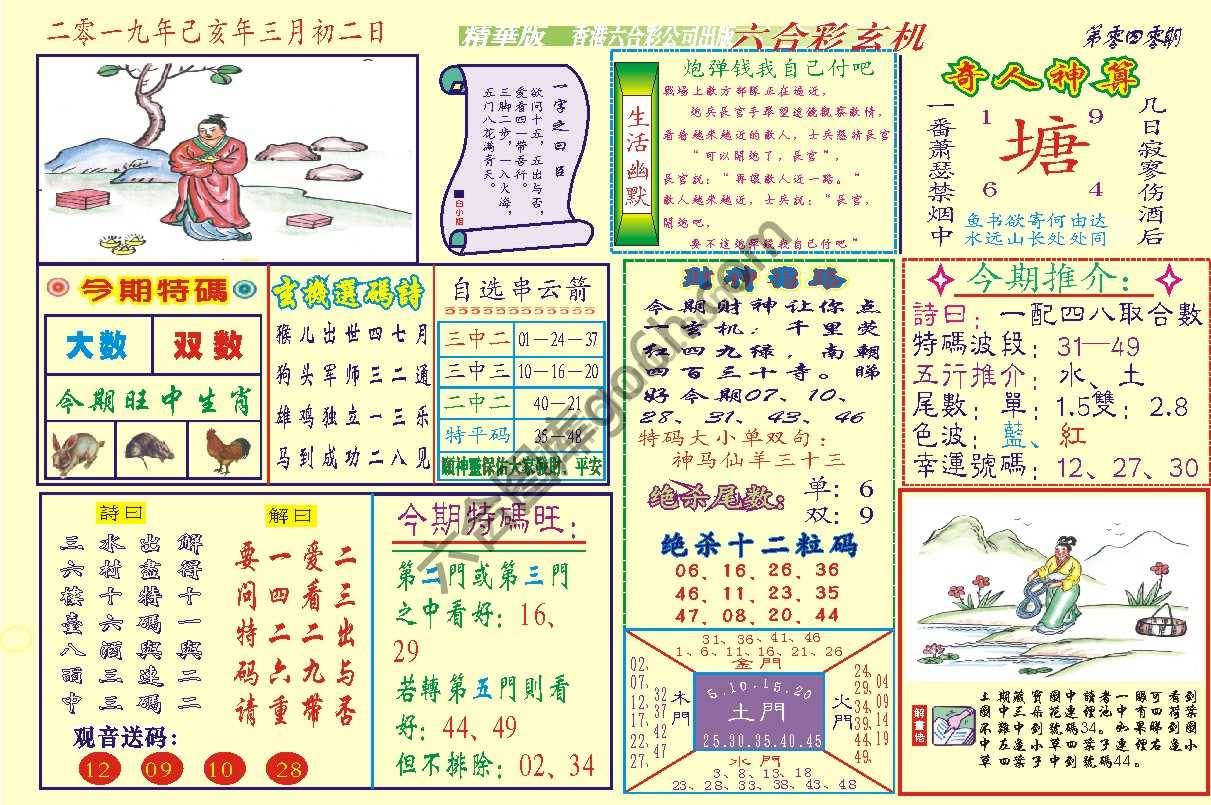 二零一九年己亥年三月初二日
精華版 香港六合彩公司出版 六合彩玄机
第零四零期
一字之曰
欲问十五，五出与否，
爱看四一带吾行。
三脚二步，一入火海，
五门八花满青天。
白小姐
生活幽默
炮弹钱我自己付吧
戰場上敵方部隊正在逼近，
炮兵長官手舉望遠鏡觀察敵情，
看着越来越近的敵人，士兵懇請長官
“可以開炮了，長官”，
長官説：“再讓敵人近一路。”
敵人越来越近，士兵説：“長官，
開炮吧，
要不這炮彈錢我自己付吧”
奇人神算
几日寂寥伤酒后
一番萧瑟禁烟中
1 9
塘
6 4
鱼书欲寄何由达
水远山长处处同
今期特碼
大数 双数
今期旺中生肖
玄機選碼詩
猴儿出世四七月
狗头军师三二通
雄鸡独立一三乐
马到成功二八见
自选串云箭
三中二 01—24—37
三中三 10—16—20
二中二 40—21
特平码 35—48
願神靈保佑大家發財、平安
财神说路
今期财神让你点
一玄机：千里荧
红四九绿，南朝
四百三十寺。睇
好今期07、10、
28、31、43、46
特码大小单双句：
神马仙羊三十三
绝杀尾数：
单：6
双：9
绝杀十二粒码
06、16、26、36
46、11、23、35
47、08、20、44
今期推介：
詩曰：一配四八取合數
特碼波段：31—49
五行推介：水、土
尾數：單：1.5雙：2.8
色波：藍、紅
幸運號碼：12、27、30
詩曰
解得十一與二
出盡特碼與連碼
水村十六酒三三
三六樓臺八面中
解曰
二三出与否
爱看二九带
一四二六重
要问特码请
观音送码：
12 09 10 28
今期特碼旺：
第二門或第三門
之中看好：16、
29
若轉第五門則看
好：44、49
但不排除：02、34
31、36、41、46
1、6、11、16、21、26
金門
02、07、12、17、22、27、
32、37、42、47
木門
5.10.15.20
土門
25.30.35.40.45
火門
24、29、34、39、44、49、
04、09、14、19
水門
3、8、13、18
23、28、33、38、43、48
解畫佬
土期藏寶圖中讀者一眼可看到
圖中三朵花連裡池中有四荷葉
不難中到號碼34。如果睇到圖
中左邊小草四葉子連裡右邊小
草四葉子中到號碼44。
六合图库go6h.com